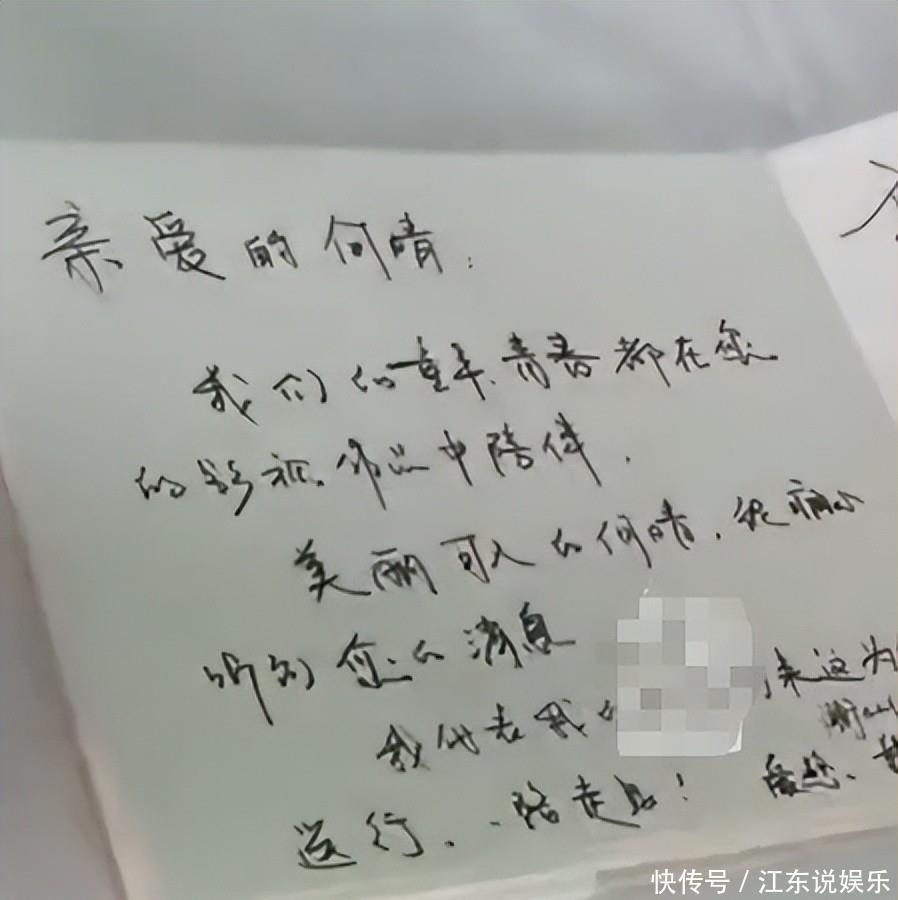 亲爱的何晴：
我们的童年、青春都在您
的影视作品中陪伴．
美丽可人的何晴，很痛心
听到您的消息
来这为
我代表我的
送行．一路走好！爱您、
快传号 / 江东说娱乐